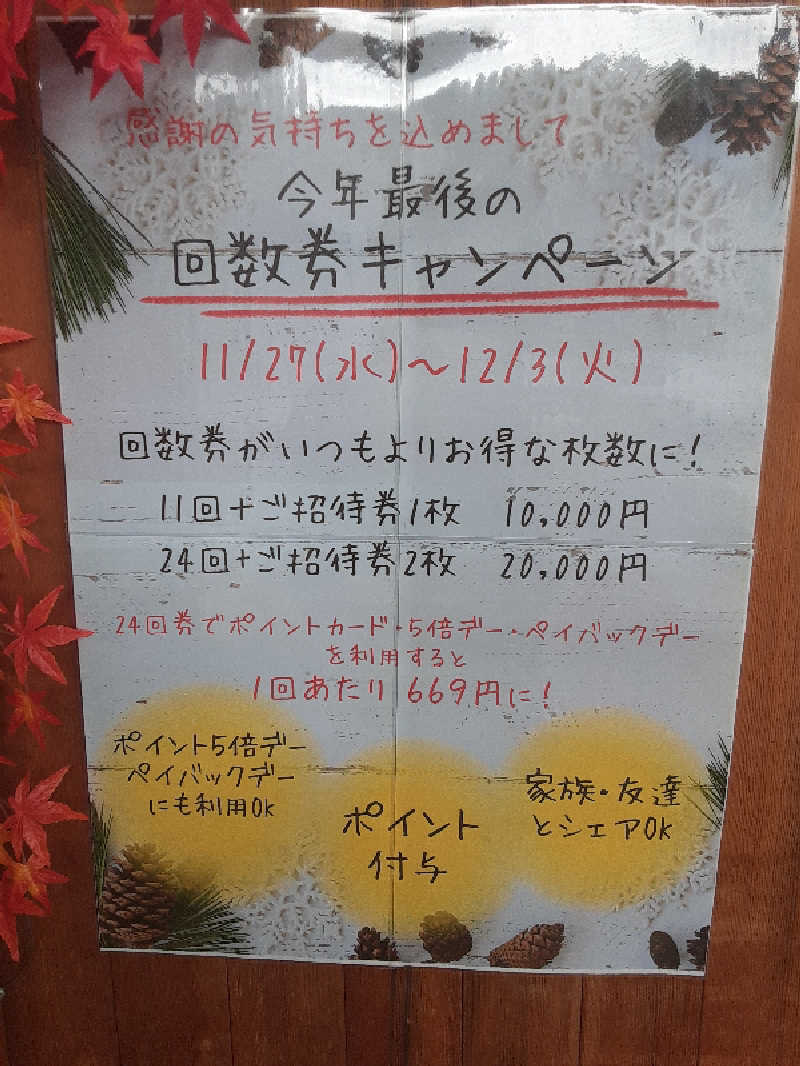 感謝の気持ちを込めまして
今年最後の
回数券キャンペーン
11/27(水)~12/3(火)
回数券がいつもよりお得な枚数に!
11回+ご招待券1枚 10,000円
24回+ご招待券2枚 20,000円
24回券でポイントカード・5倍デー・ペイバックデー
を利用すると
1回あたり669円に!
ポイント5倍デー
ペイバックデー
にも利用OK
ポイント
付与
家族・友達
とシェアOK